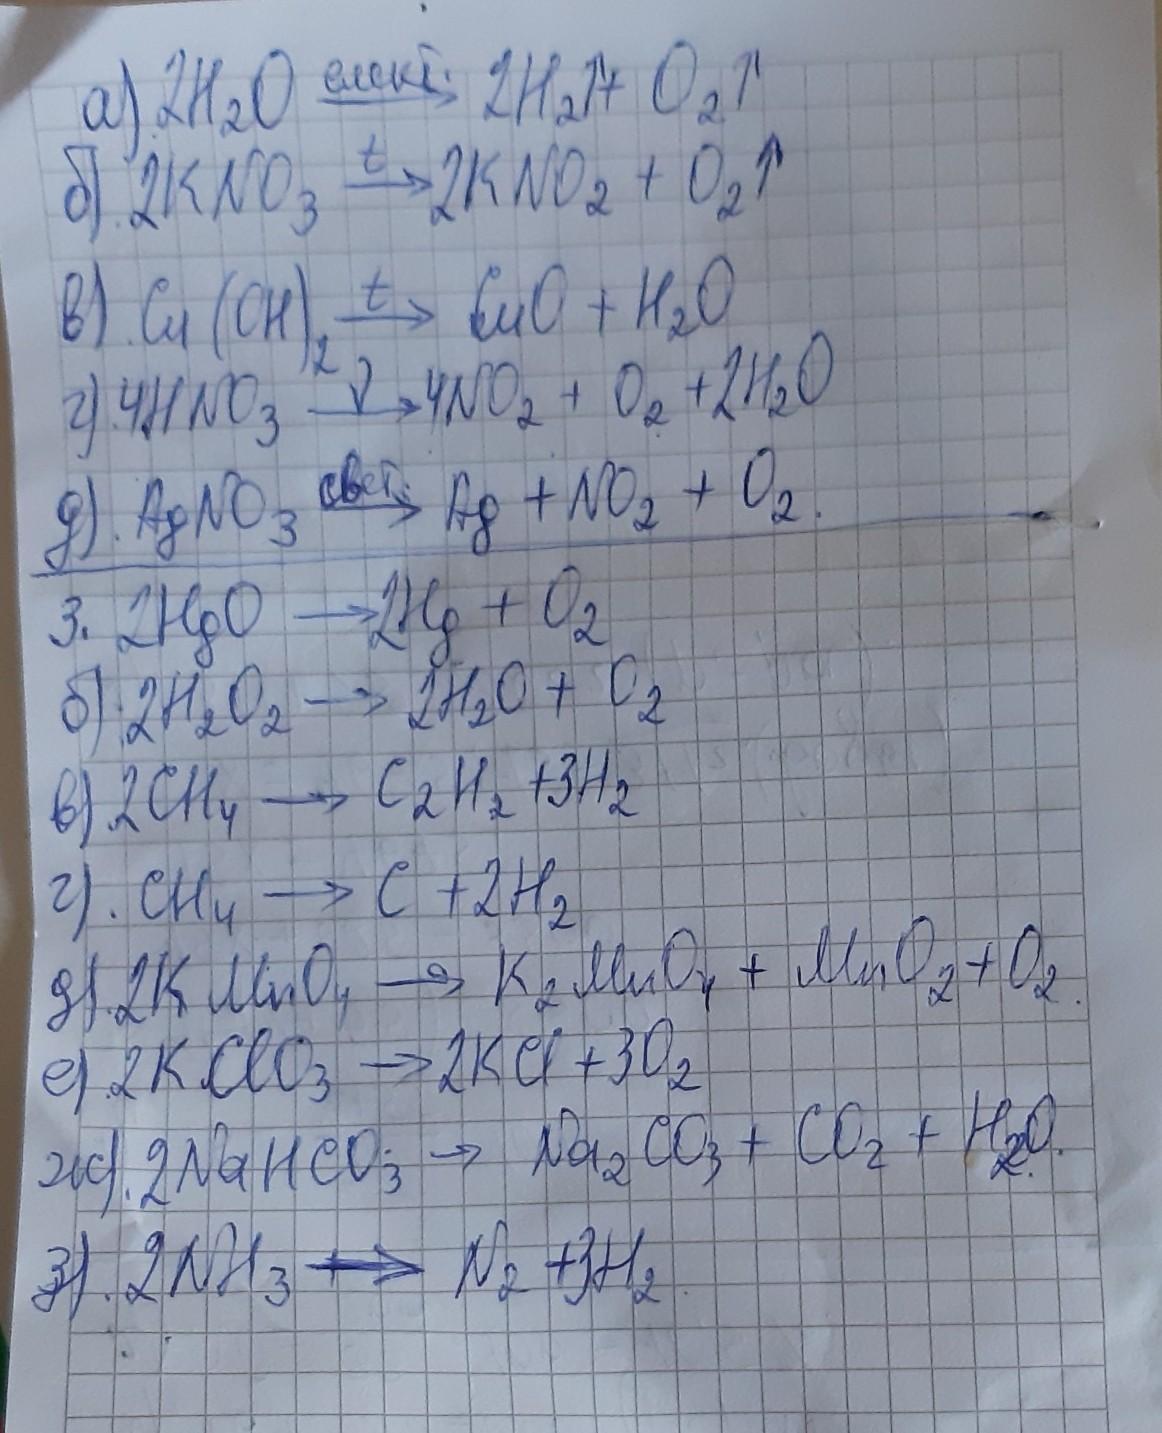 а) 2H₂O елект.→ 2H₂↑+ O₂↑
б). 2KNO₃ t→ 2KNO₂ + O₂↑
в) Cu(OH)₂ t→ CuO + H₂O
г). 4HNO₃ → 4NO₂ + O₂ + 2H₂O
д). AgNO₃ свет.→ Ag + NO₂ + O₂.
3. 2HgO → 2Hg + O₂
б). 2H₂O₂ → 2H₂O + O₂
в) 2CH₄ → C₂H₂ + 3H₂
г). CH₄ → C + 2H₂
д). 2KMnO₄ → K₂MnO₄ + MnO₂ + O₂.
е). 2KClO₃ → 2KCl + 3O₂
ж). 2NaHCO₃ → Na₂CO₃ + CO₂ + H₂O.
з). 2NH₃ → N₂ + 3H₂.